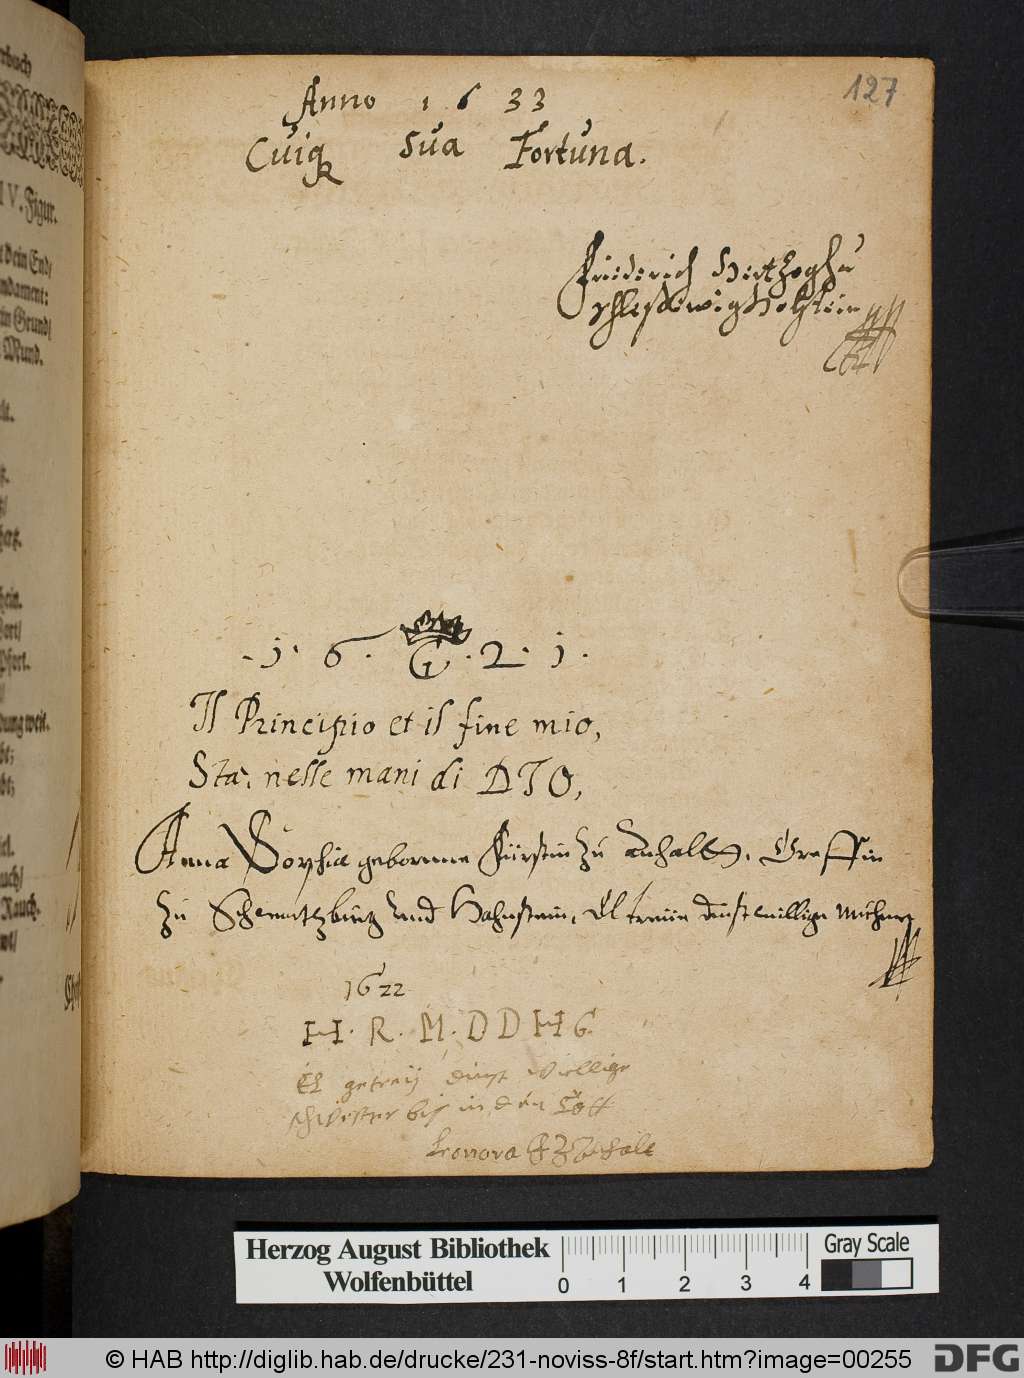 rbuch
IV. Figur.
t dein End/
ndament:
in Grund/
Mund.
127
Anno 1633
Cuiq sua Fortuna.
Friederich Hertzog zu
Schleswig Holstein
1 6 G 2 1
Il Principio et il fine mio,
Sta, nelle mani di DIO,
Anna Sophia geborne Fürstin zu Anhaltt, Greffin
zu Schwartzburg und Hohnstein, El treue dinstwillige Muhme
1622
H. R. M. D D H G
El getreÿ dinst willige
schwester bis in den Tott
Leonora F Z Anhalt
Herzog August Bibliothek
Wolfenbüttel
0 1 2 3 4
Gray Scale
© HAB http://diglib.hab.de/drucke/231-noviss-8f/start.htm?image=00255
DFG